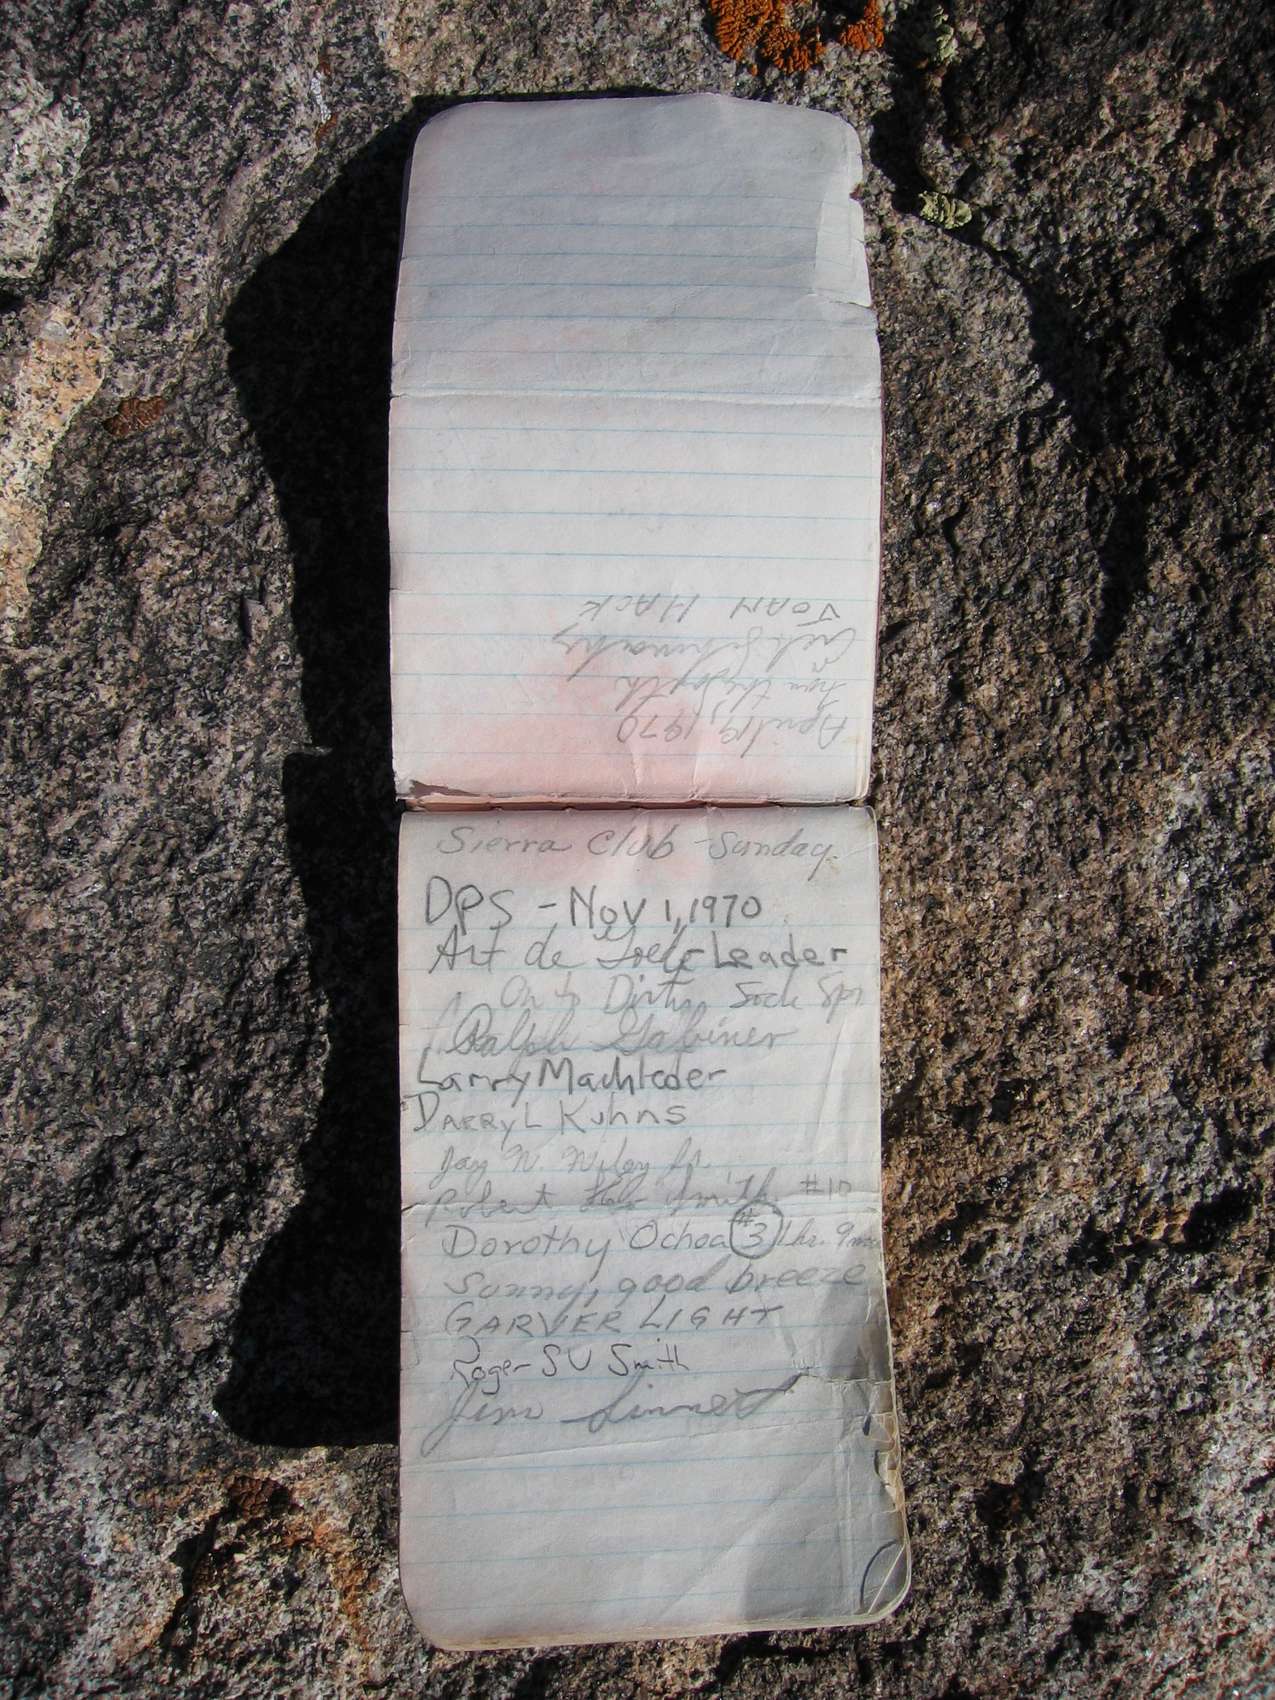 April 19, 1970
from the South
JOAN HACK
Sierra Club - Sunday
DPS - Nov 1, 1970
Art de Goede Leader
On to Dirty Sock Spr
Ralph Gabiner
Larry Machleder
DARRYL KUHNS
Jay W. Wiley Jr.
Robert Smith #10
Dorothy Ochoa #3 1 hr. 9 min
Sunny, good breeze
GARVER LIGHT
Roger SU Smith
Jim